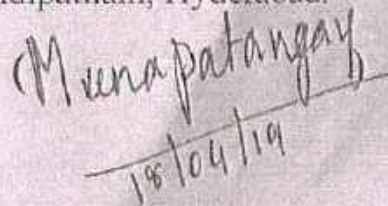 Hyderabad.
(Meena Patangay)
18/04/19